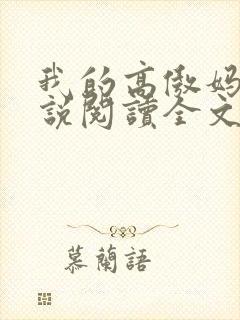 我的高傲妈
説閱讀全文
慕蘭語